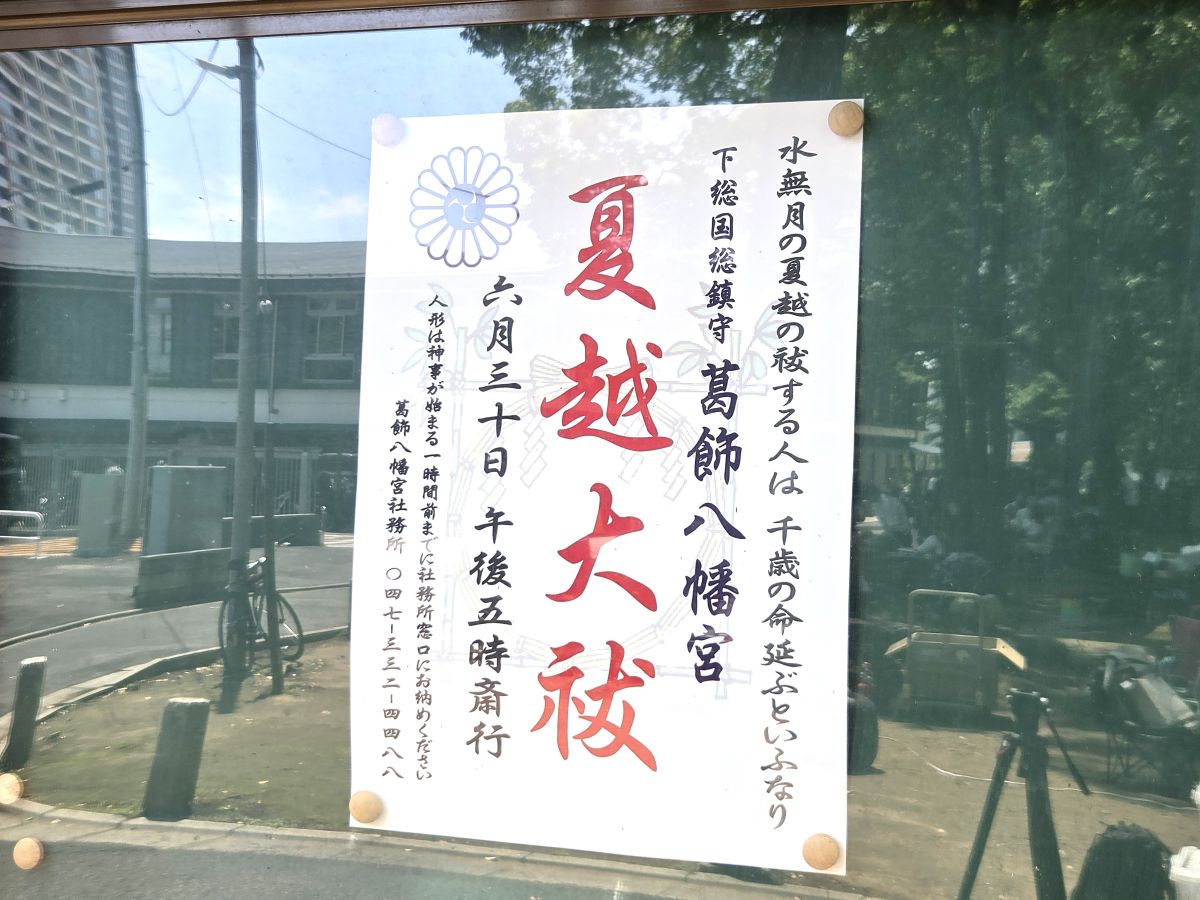 水無月の夏越の祓する人は 千歳の命延ぶといふなり
下総国総鎮守 葛飾八幡宮
夏越大祓
六月三十日 午後五時斎行
人形は神事が始まる一時間前までに社務所窓口にお納めください
葛飾八幡宮社務所 〇四七-三三二-四四八八